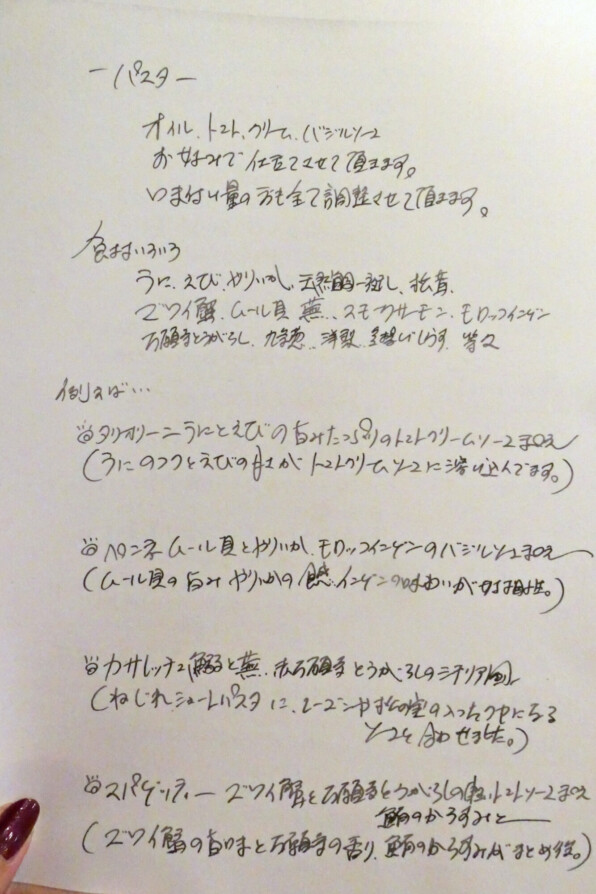 ーパスター
オイル、トマト、クリーム、バジルソース
お好みで仕立てさせて頂きます。
量の方も全て調整させて頂きます。
食材いろいろ
うに、えび、やりいか、天然鯛一夜干し、松茸、
ズワイ蟹、ムール貝、蕪、スモークサーモン、モロッコインゲン
万願寺とうがらし、九条葱、洋梨、釜揚げしらす、等々
例えば…
タリオリーニ うにとえびの旨みたっぷりのトマトクリームソースまかせ
(うにのコクとえびの甘さがトマトクリームソースに溶け込んでます。)
ペンネ ムール貝とやりいか、モロッコインゲンのバジルソース
(ムール貝の旨み やりいかの食感 インゲンの味わいが好相性。)
カサレッチェ と蕪、赤万願寺とうがらしのシチリア風
(ねじれショートパスタに、レーズンや松の実の入ったクセになる
ソースを合わせました。)
スパゲッティー ズワイ蟹と万願寺とうがらしの トマトソース
のからすみと
(ズワイ蟹の旨味と万願寺の香り、 のからすみがまとめ役。)